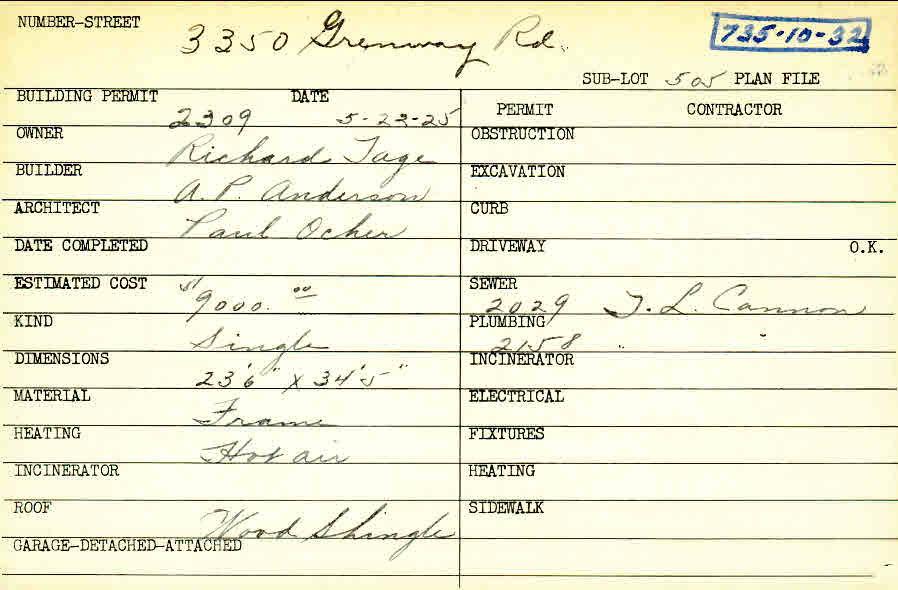 NUMBER-STREET 3350 Grenway Rd. 735-10-32
SUB-LOT 505 PLAN FILE
BUILDING PERMIT 2309 DATE 5-22-25
PERMIT CONTRACTOR
OWNER Richard Tage
OBSTRUCTION
BUILDER A. P. Anderson
EXCAVATION
ARCHITECT Paul Ocher
CURB
DATE COMPLETED
DRIVEWAY O.K.
ESTIMATED COST $9000.00
SEWER 2029 T. L. Cannon
KIND Single
PLUMBING 2158 " "
DIMENSIONS 23'6" X 34'5"
INCINERATOR
MATERIAL Frame
ELECTRICAL
HEATING Hot air
FIXTURES
INCINERATOR
HEATING
ROOF Wood Shingle
SIDEWALK
GARAGE-DETACHED-ATTACHED